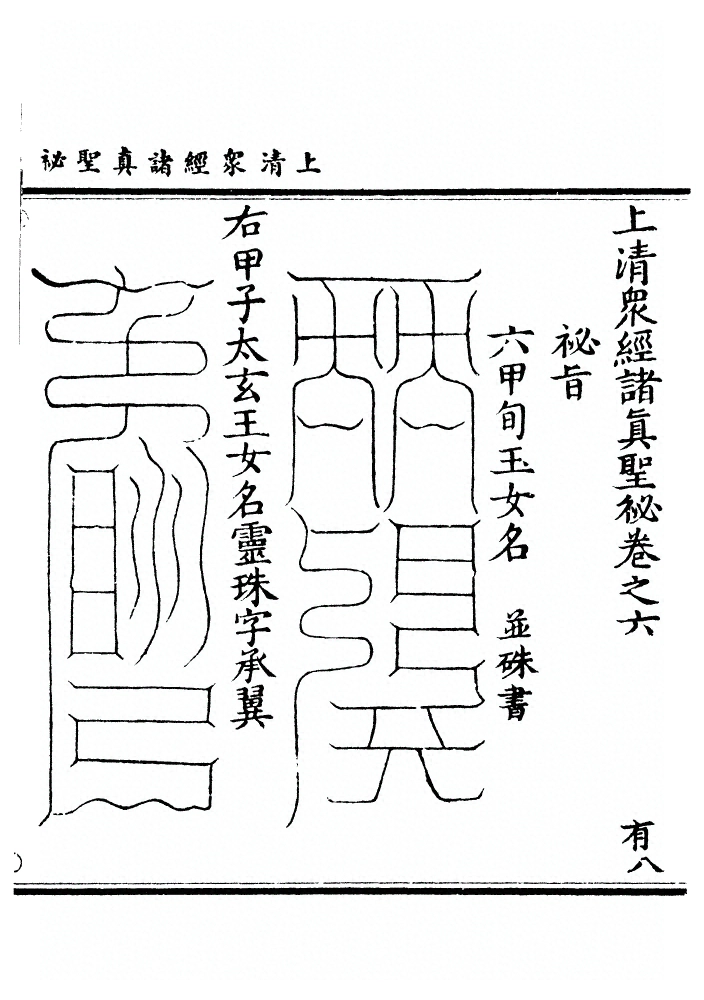 上清衆經諸真聖祕
上清衆經諸眞聖祕卷之六
有八
祕旨
六甲旬玉女名 並硃書
右甲子太玄王女名靈珠字承翼